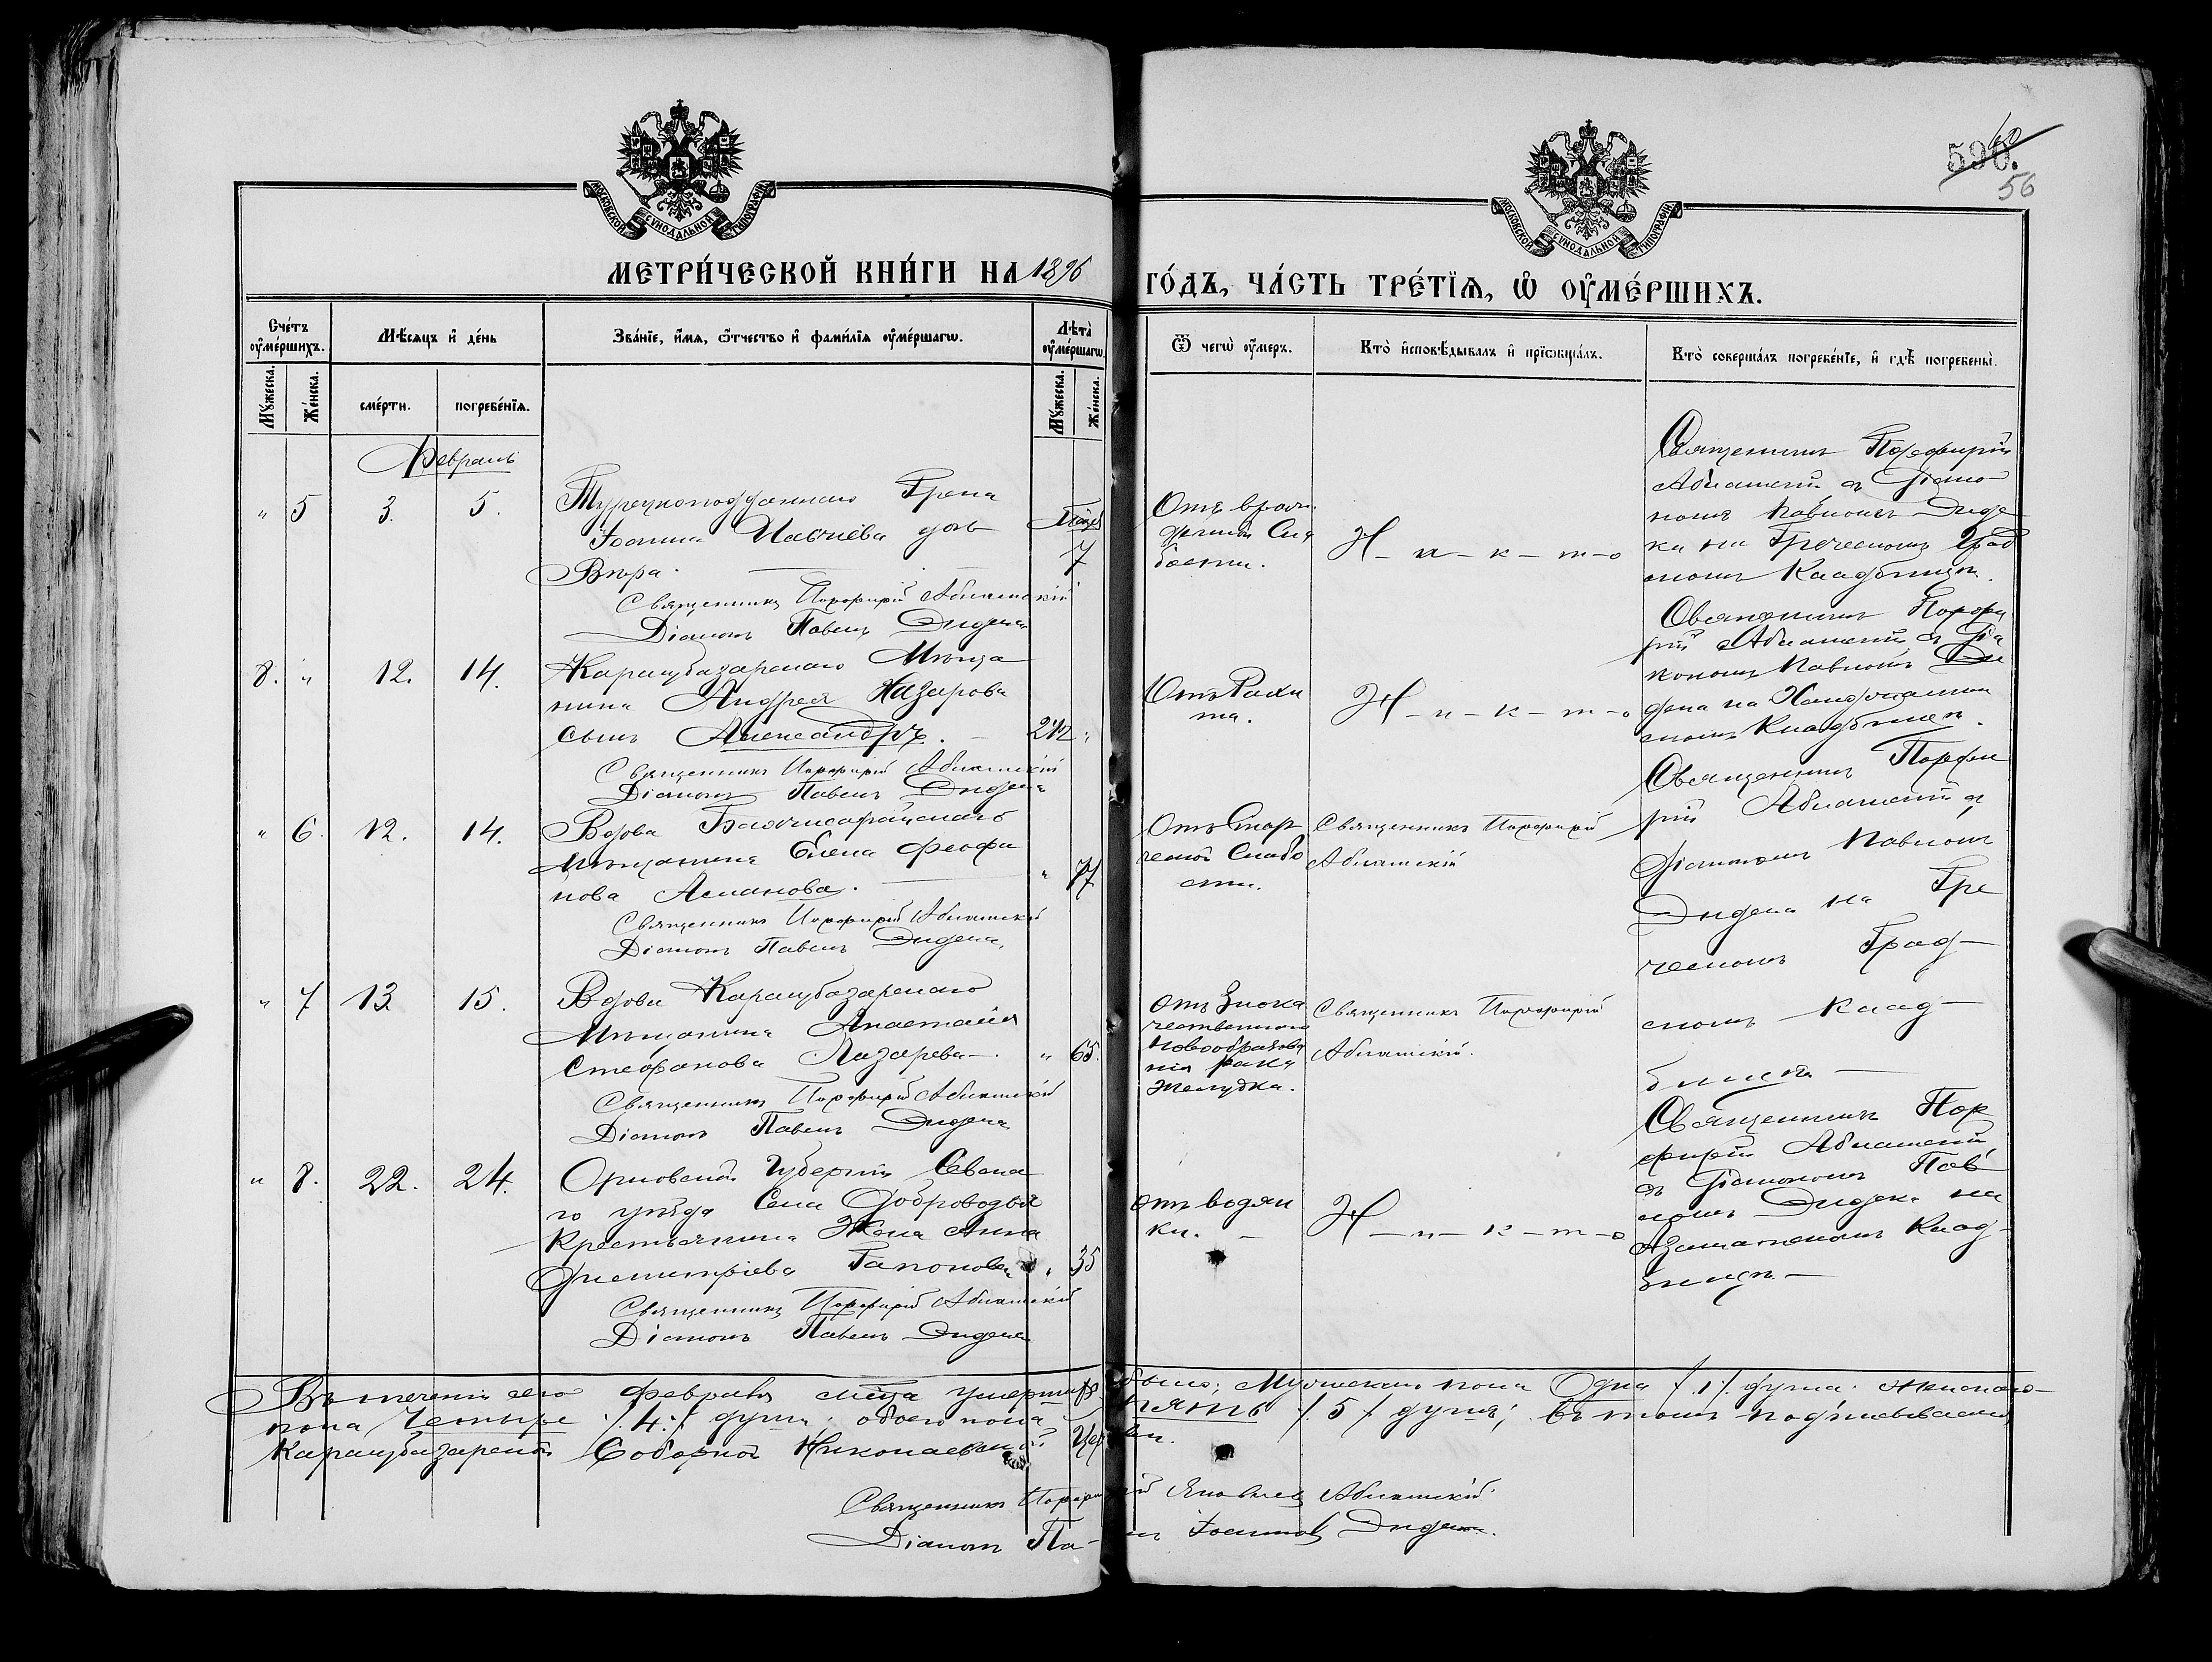 МОСКОВСКОЙ СУНОДАЛЬНОЙ ТИПОГРАФІИ
МОСКОВСКОЙ СУНОДАЛЬНОЙ ТИПОГРАФІИ
56
МЕТРИ́ЧЕСКОЙ КНИ́ГИ НА 1896 ГО́ДЪ, ЧА́СТЬ ТРЕ́ТЇѦ, Ѡ҆ ОУ҆МЕ́РШИХЪ.
Сче́тъ оу҆ме́ршихъ.
Мѣ́сяцъ и҆ де́нь
Зва́нїе, и҆́мя, ѻ҆́тчество и҆ фами́лїя оу҆ме́ршагѡ.
Лѣ́та оу҆ме́ршагѡ.
Ѿ чегѡ̀ оу҆́меръ.
Кто̀ и҆сповѣ́дывалъ и҆ прїѡбща́лъ.
Кто̀ соверша́лъ погребе́нїе, и҆ гдѣ̀ погребены̀.
Му́жеска.
Же́нска.
сме́рти.
погребе́нїя.
Му́жеска.
Же́нска.
Февраль
" 5 3. 5.
Турецкоподданнаго Грека
Іоанна дочь
Вѣра.
7
Священникъ Порфирій Абламскій
Діаконъ Павелъ Эндека
Отъ врож
денной Сла
бости.
Н-и-к-т-о
Священникъ Порфирій
Абламскій съ Діако
номъ Павломъ Энде
ка на Греческомъ Град
скомъ Кладбищѣ.
8. " 12. 14.
Карасубазарскаго Мѣща
нина Андрея Назарова
сынъ Александръ.
Священникъ Порфирій Абламскій
Діаконъ Павелъ Эндека
Отъ Рахи
та.
Н-и-к-т-о
Священникъ Порфи
рій Абламскій съ Діа
кономъ Павломъ Эн
дека на
скомъ Кладбищѣ.
" 6. 12. 14.
Вдова Бахчисарайскаго
Мѣщанина Елена Феофа
нова Асланова.
" 77
Священникъ Порфирій Абламскій
Діаконъ Павелъ Эндека.
Отъ Стар
ческой Слабо
сти.
Священникъ Порфирій
Абламскій
Священникъ Порфи
рій Абламскій съ
Діакономъ Павломъ
Эндека на Гре
ческомъ Град-
скомъ Клад-
бищѣ
" 7 13. 15.
Вдова Карасубазарскаго
Мѣщанина Анастасія
Стефанова Лазарева.
" 65.
Священникъ Порфирій Абламскій
Діаконъ Павелъ Эндека
Отъ Злока
чественнаго
Новообразова
нія рака
Желудка.
Священникъ Порфирій
Абламскій.
" 8. 22. 24.
Орловской Губерніи Сѣвска
го уѣзда Села Доброводья
Крестьянина Жена Анна
Димитріева Гапонова
" 35
Священникъ Порфирій Абламскій
Діаконъ Павелъ Эндека
Отъ водян
ки.
Н-и-к-т-о
Священникъ Пор
фирій Абламскій
съ Діакономъ Пав
ломъ Эндека на
Клад-
бищѣ.
Въ теченіи сего февраля мѣсяца умершихъ было; Мужескаго пола Одна /.1/. душа. Женскаго
пола Четыре /.4./ души. обоего пола пять /.5/ душъ; въ томъ подписываемся
Карасубазарской Соборной Николаевской Церкви.
Священникъ Порфирій Яковлевъ Абламскій.
Діаконъ Павелъ Іоанновъ Эндека.